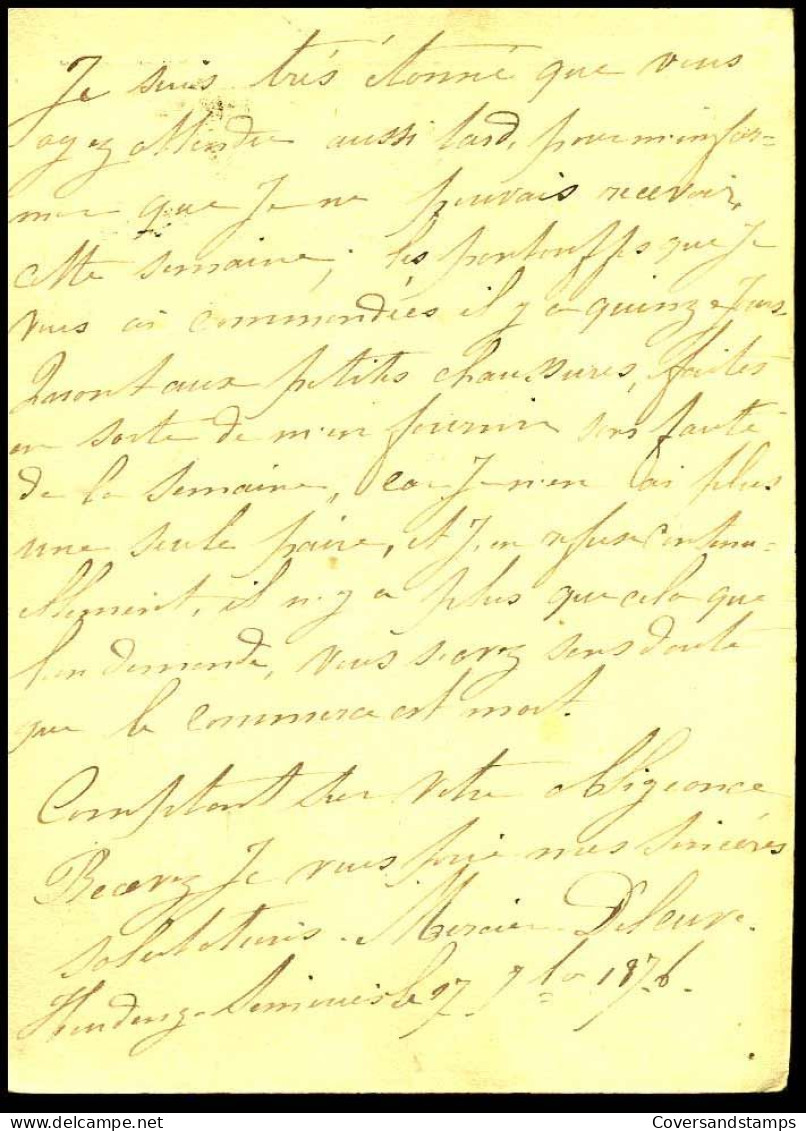 Je suis très étonné que vous
ayez attendu aussi tard, pour m'infor=
mer que Je ne pouvais recevoir,
cette semaine; les pantouffs que Je
vous ai commandées il y a quinze Jours.
Quant aux petites chaussures, faites
en sorte de m'en fournir sans faute
de la semaine, car Je n'en ai plus
une seule paire, et J'en refuse continu=
ellement, il n'y a plus que cela que
l'on demande, vous savez sans doute
que le commerce est mort.
Comptant sur votre obligeance
Recevez Je vous prie mes sincères
salutations. Mercier
le 27 1876.
CoversandStamps